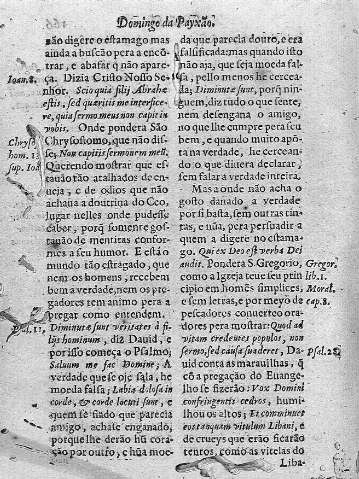 Domingo da Payxão.
não digere o estamago mas
ainda a busção pera a encõ
trar, e abafar q̃ não apare-
ça. Dizia Cristo Nosso Se-
nhor. Scio quia filij Abrahæ
estis, sed quæritis me interfice-
re, quia sermo meus non capit in
vobis. Onde pondera São
Chrysostomo, que não dis-
se, Non capitis sermonem meũ.
Querendo mostrar que es-
tauão tão atalhados de en-
ueja, e de odios que não
achaua a doutrina do Ceo,
lugar nelles onde pudesse
caber, porq̃ somente gos-
tauão de mentiras confor-
mes a seu humor. E está o
mundo tão estragado, que
nem os homens, recebem
bem a verdade, nem os pre-
gadores tem animo pera a
pregar como entendem.
Diminutæ sunt veritates à fi-
lijs hominum, diz Dauid, e
por isso começa o Psalmo,
Saluum me fac Domine; A
verdade que se oje fala, he
moeda falsa; Labia dolosa in
corde, & corde locuti sunt, e
quem se fiado que parecia
amigo, achase enganado,
porque lhe derão hũ cora-
ção por outro, e hũa moe-
Ioan. 8.
Chryso
hom.
sup. Ioã
Psal. 11.
da que parecia douro, e era
falsificada: mas quando isto
não aja, que seja moeda fal-
sa, pello menos he cercea-
da; Diminutæ sunt, porq̃ nin-
guem, diz tudo o que sente,
nem desengana o amigo,
no que lhe cumpre pera seu
bem, e quando muito apõ-
ta na verdade, lhe cercean-
do o que ditera declarar,
sem falar a verdade inteira.
Mas a onde não acha o
gosto danado, a verdade
por si basta, sem outras tin-
tas, e nũa, pera persuadir a
quem a digere no estama-
go. Qui ex Deo est verba Dei
audit. Pondera S. Gregorio,
como a Igreja teue seu prin
cipio em homẽs simplices,
e sem letras, e por meyo de
pescadores conuerteo ora-
dores pera mostrar: Quod ad
vitam credentes populos, non
sermo, sed causa suaderet, Da-
uid conta as marauilhas, q̃
cõ a pregação do Euange-
lho se fizerão: Vox Domini
confringentis cedros, humi-
lhou os altos; Et comminuet
eos tanquam vitulum Libani, e
de crueys que erão ficarão
tenros, como as vitelas do
Liba-
Gregor.
lib. 1.
Moral.
cap. 8.
Psal. 28